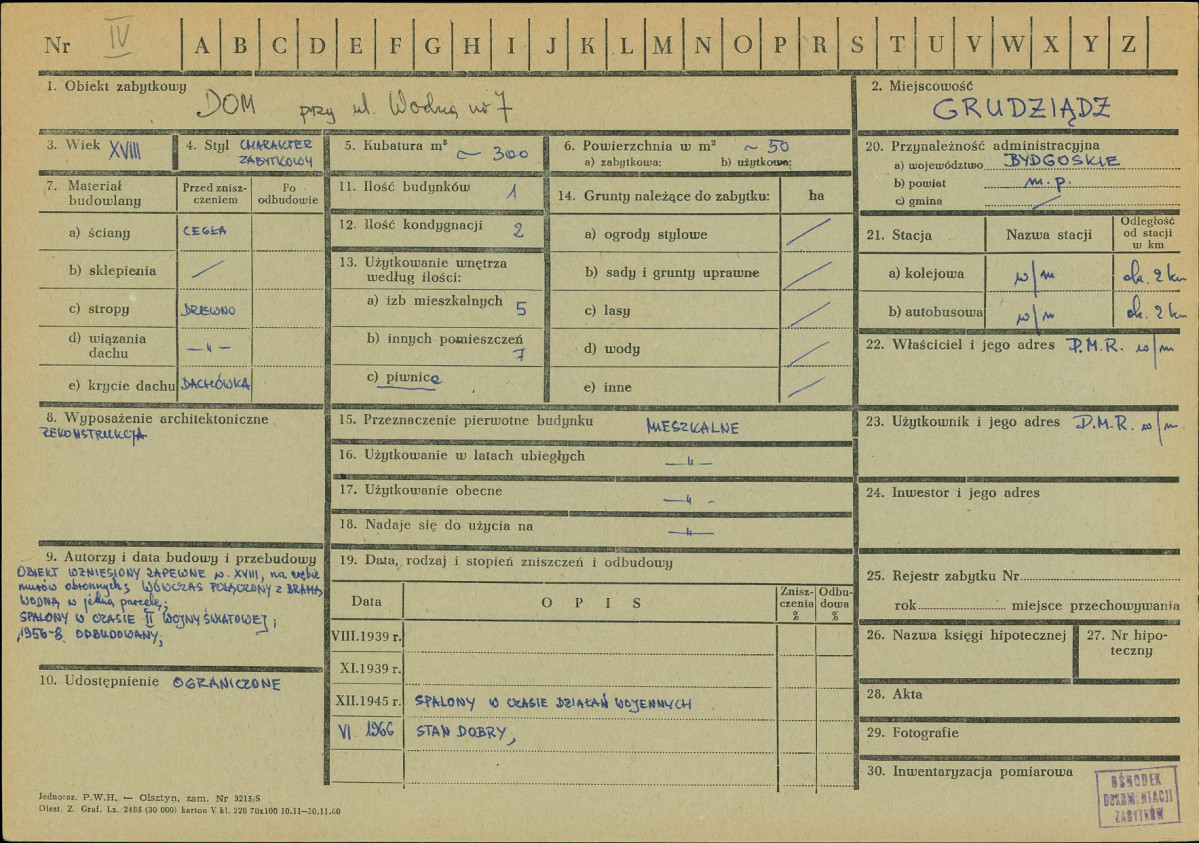 Nr IV A B C D E F G H I J K L M N O P R S T U V W X Y Z
1. Obiekt zabytkowy
DOM przy ul. Wodną nr 7
2. Miejscowość
GRUDZIĄDZ
3. Wiek XVIII
4. Styl CHARAKTER
ZABYTKOWY
5. Kubatura m³ ~ 300
6. Powierzchnia w m² ~ 50
a) zabytkowa: b) użytkowa:
20. Przynależność administracyjna
a) województwo BYDGOSKIE
b) powiat m. p.
c) gmina /
7. Materiał
budowlany
Przed znisz-
czeniem
Po
odbudowie
a) ściany CEGŁA
b) sklepienia /
c) stropy DREWNO
d) wiązania
dachu —〃—
e) krycie dachu DACHÓWKA
11. Ilość budynków 1
12. Ilość kondygnacji 2
13. Użytkowanie wnętrza
według ilości:
a) izb mieszkalnych 5
b) innych pomieszczeń
7
c) piwnice
14. Grunty należące do zabytku: ha
a) ogrody stylowe /
b) sady i grunty uprawne /
c) lasy /
d) wody /
e) inne /
21. Stacja Nazwa stacji
Odległość
od stacji
w km
a) kolejowa w/m ok. 2 km
b) autobusowa w/m ok. 2 km
22. Właściciel i jego adres P.M.R. w/m
8. Wyposażenie architektoniczne
REKONSTRUKCJA
15. Przeznaczenie pierwotne budynku MIESZKALNE
16. Użytkowanie w latach ubiegłych —〃—
17. Użytkowanie obecne —〃—
18. Nadaje się do użycia na —〃—
23. Użytkownik i jego adres P.M.R. w/m.
24. Inwestor i jego adres
9. Autorzy i data budowy i przebudowy
OBIEKT WZNIESIONY ZAPEWNE w. XVIII, na zrębie
murów obronnych; WÓWCZAS POŁĄCZONY Z BRAMĄ
WODNĄ w jedną parcelę;
SPALONY W CZASIE II WOJNY ŚWIATOWEJ;
1956-8 ODBUDOWANY;
10. Udostępnienie OGRANICZONE
19. Data, rodzaj i stopień zniszczeń i odbudowy
Data
O P I S
Znisz-
czenia
%
Odbu-
dowa
%
VIII.1939 r.
XI.1939 r.
XII.1945 r. SPALONY W CZASIE DZIAŁAŃ WOJENNYCH
VI. 1966 STAN DOBRY;
25. Rejestr zabytku Nr
rok miejsce przechowywania
26. Nazwa księgi hipotecznej
27. Nr hipo-
teczny
28. Akta
29. Fotografie
30. Inwentaryzacja pomiarowa
OŚRODEK
DOKUMENTACJI
ZABYTKÓW
Jednoraz. P.W.H. — Olsztyn, zam. Nr 3215/S
Olszt. Z. Graf. Lz. 2485 (30 000) karton V kl. 220 70x100 10.11—30.11.60